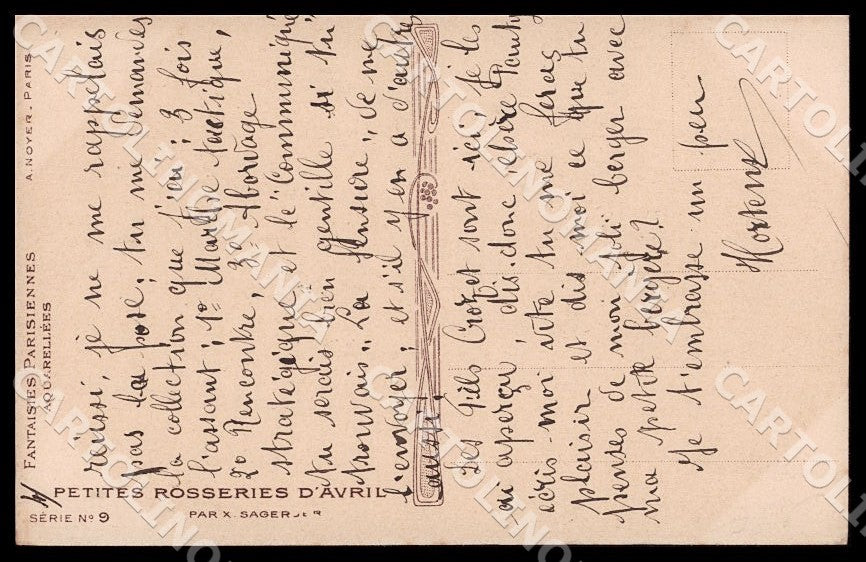 FANTAISIES PARISIENNES
AQUARELLÉES
A. NOYER. PARIS
4/ PETITES ROSSERIES D'AVRIL
SÉRIE Nº 9 PAR X. SAGER
réussi, je ne me rappelais
pas la pose, tu me demandes
la collection que j'en ai 3 fois
l'assaut; 1º Marche tactique,
2º Rencontre, 3º Abordage
stratégique et le "Communiqué
tu serais bien gentille si tu
pouvais "La Censure" de me
l'envoyer, et s'il y en a d'autre
aussi!
Les fils Crozet sont ici, je les
ai aperçu, dis donc chère
écris-moi vite tu me feras
plaisir et dis moi ce que tu
penses de mon joli berger avec
ma petite bergère?
Je t'embrasse un peu
Hortense
CARTOLINOMANIA